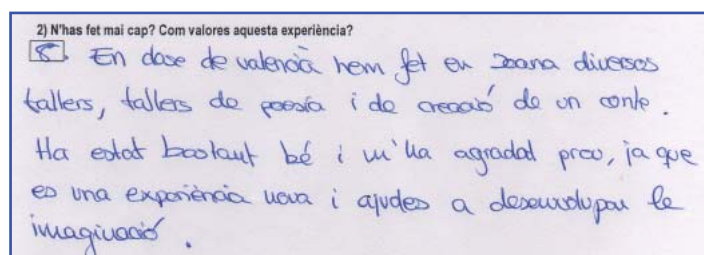 2) N'has fet mai cap? Com valores aquesta experiència?
En clase de valencià hem fet en Joana diversos
tallers, tallers de poesía i de creació de un conte.
Ha estat bastant bé i m'ha agradat prou, ja que
es una experiència nova i ajudes a desenvolupar la
imaginació.